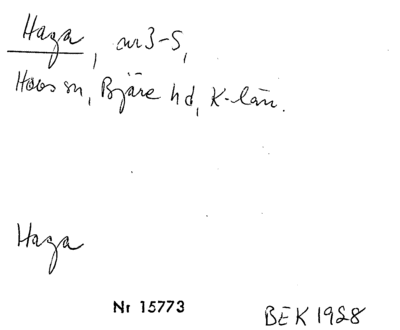 Haga, nr 3-5,
Hovs sn, Bjäre hd, K-län.
Haga
Nr 15773
BEK 1928